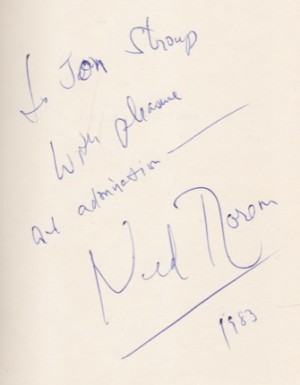 to Jon Stroup
With pleasure
and admiration —
Ned Rorem
1983